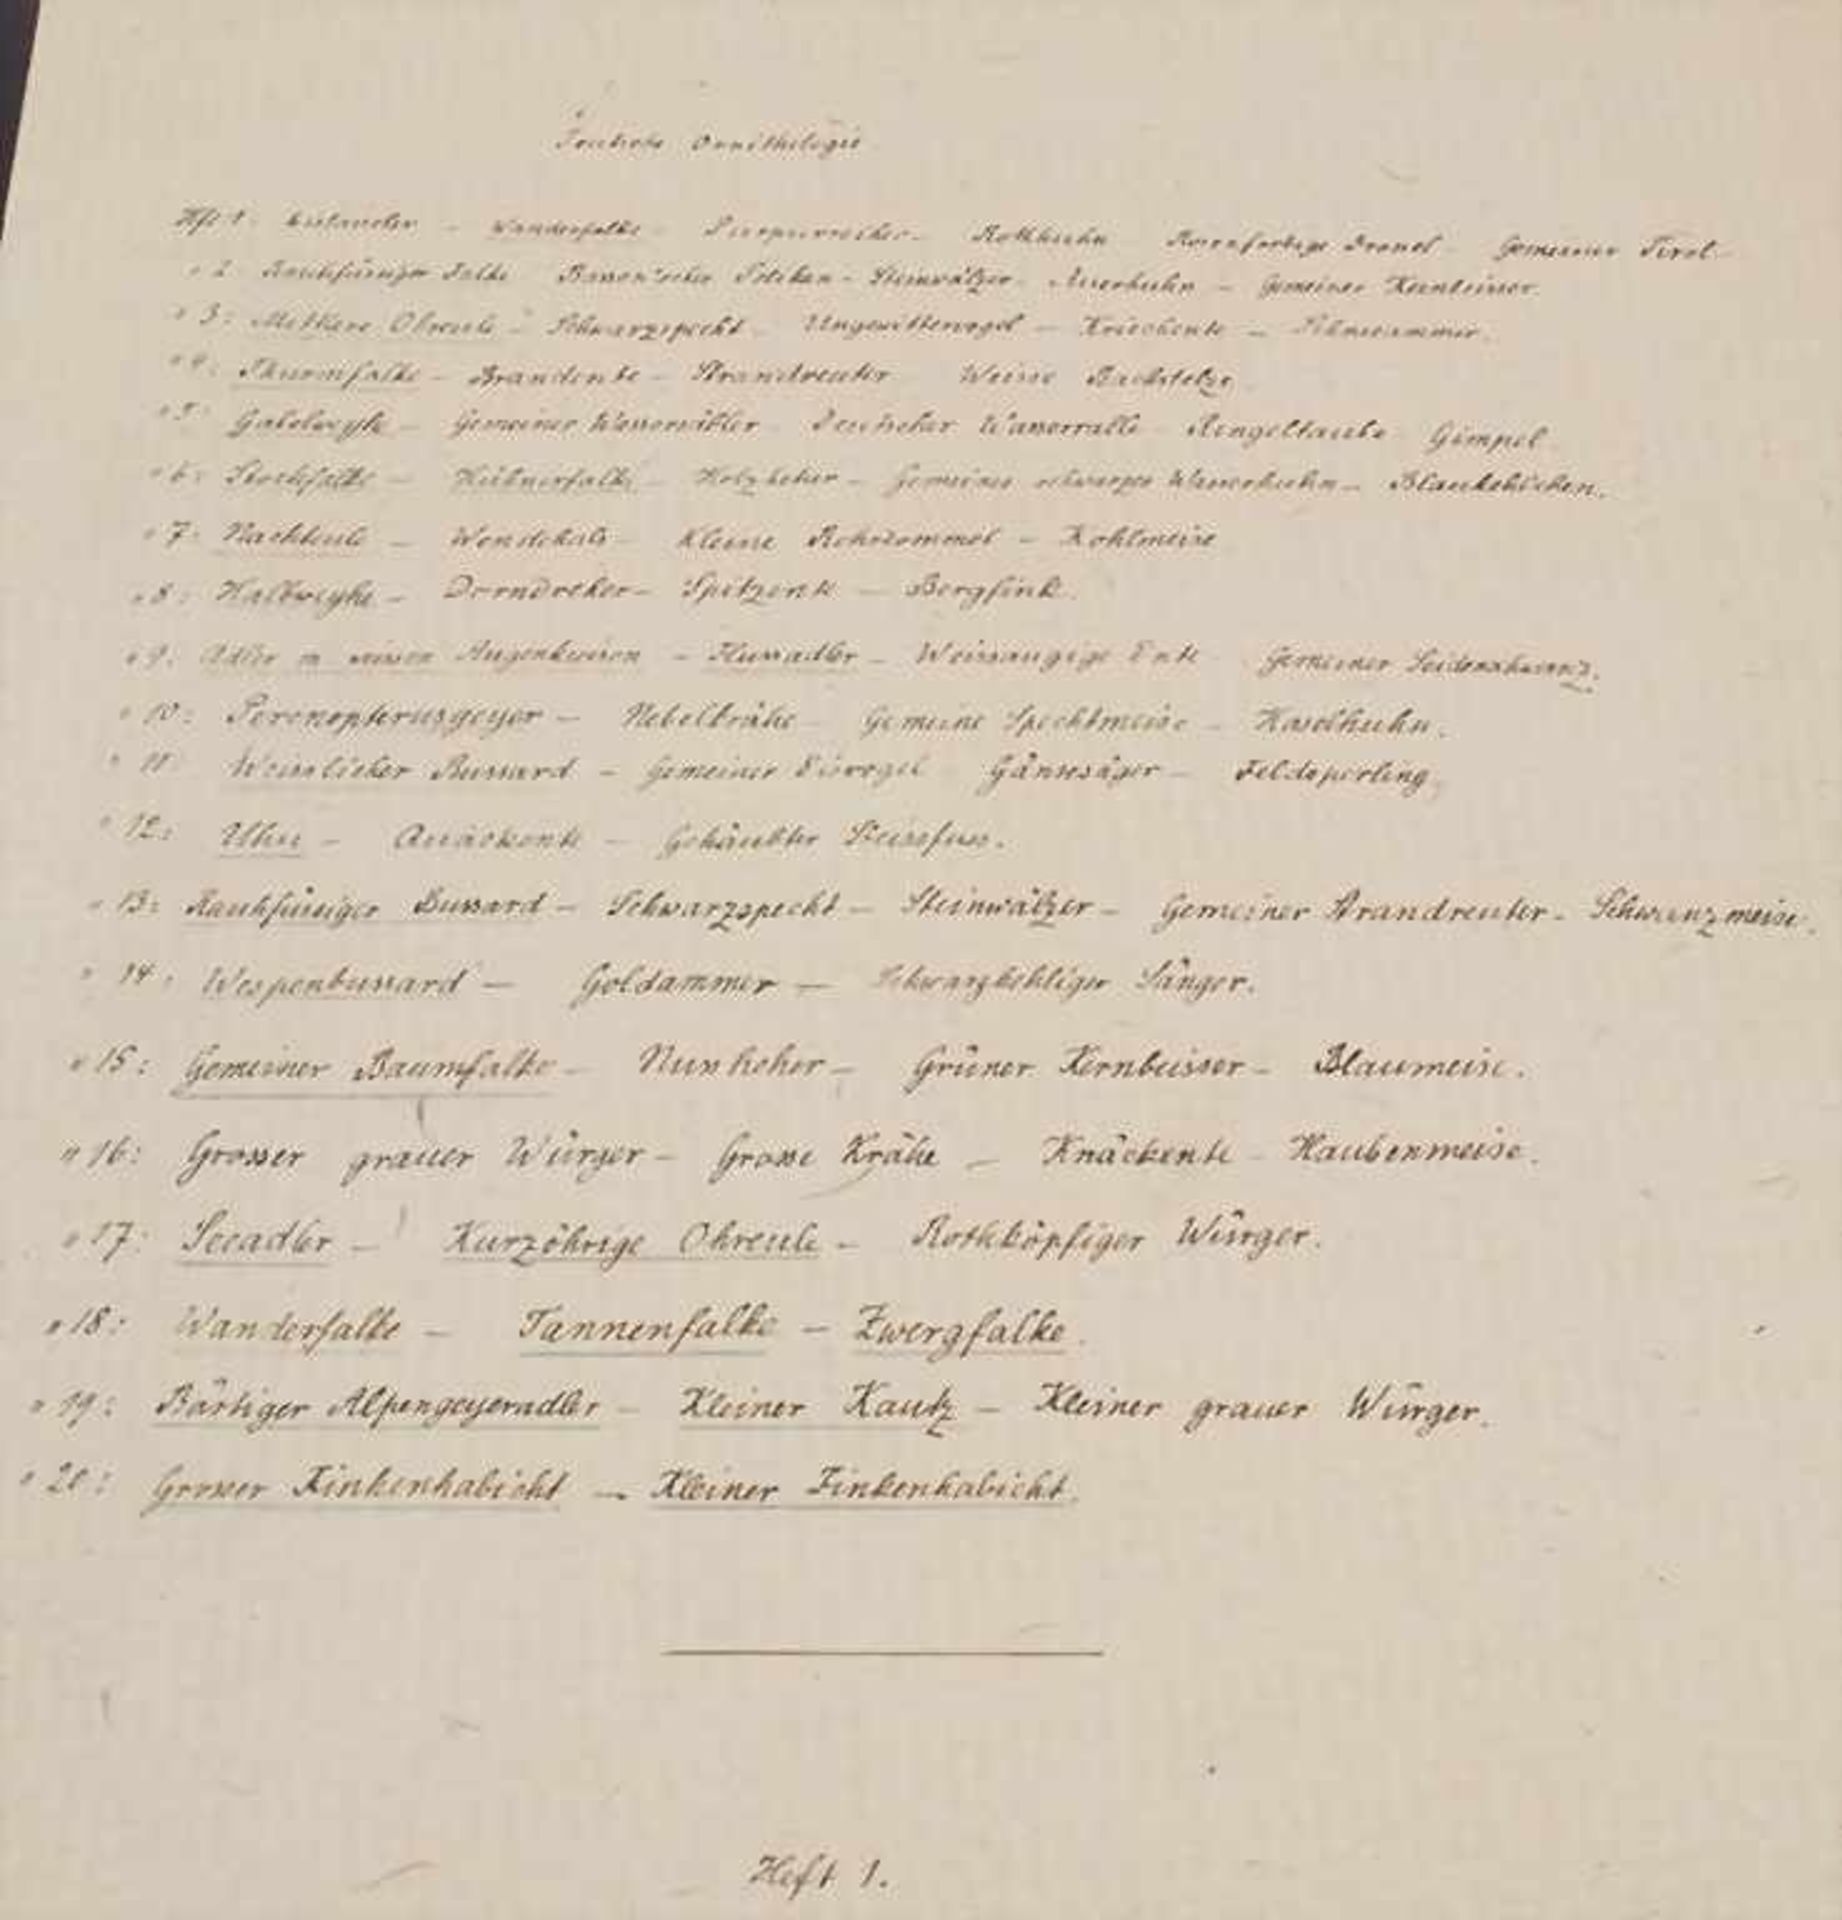 Teutsche Ornithologie
Hft 1: – Wanderfalke – Purpurreiher – Rothhuhn – Rosenfarbige Drossel – Gemeiner Pirol –
" 2: Rauchfüssiger Falke – Pelikan – Steinwälzer – Auerhuhn – Gemeiner Kernbeisser.
" 3: Mitlere Ohreule – Schwarzspecht – Ungewittervogel – Kriechente – Schneeammer.
" 4: Thurmfalke – Brandente – Strandreuter – Weisse Bachstelze
" 5: Gabelweyhe – Gemeiner Wassersäbler – Teutscher Wasserralle – Ringeltaube – Gimpel
" 6: Stockfalke – Hühnerfalke – Holzheher – Gemeines schwarzes Wasserhuhn – Blaukehlchen.
" 7: Nachteule – Wendehals – Kleine Rohrdommel – Kohlmeise
" 8: Halbweyhe – Dorndreher – Spitzente – Bergfink.
" 9: Adler m weissen Augenkreisen – Flussadler – Weissaugige Ente – Gemeiner Seidenschwanz.
" 10: Percnopterusgeyer – Nebelkrähe – Gemeine Spechtmeise – Haselhuhn.
" 11: Weisslicher Bussard – Gemeiner Eisvogel – Gänsesäger – Feldsperling.
" 12: Uhu – – Gehäubter Steissfuss.
" 13: Rauhfüssiger Bussard – Schwarzspecht – Steinwälzer – Gemeiner Strandreuter – Schwanzmeise.
" 14: Wespenbussard – Goldammer – Schwarzkehliger Sänger.
" 15: Gemeiner Baumfalke – Nussheher – Grüner Kernbeisser – Blaumeise.
" 16: Grosser grauer Würger – Grosse Krähe – Knäckente – Haubenmeise.
" 17: Seeadler – Kurzöhrige Ohreule – Rothköpfiger Würger.
" 18: Wanderfalke – Tannenfalke – Zwergfalke.
" 19: Bärtiger Alpengeyeradler – Kleiner Kautz – Kleiner grauer Würger.
" 20: Grosser Finkenhabicht – Kleiner Finkenhabicht.
Heft 1.